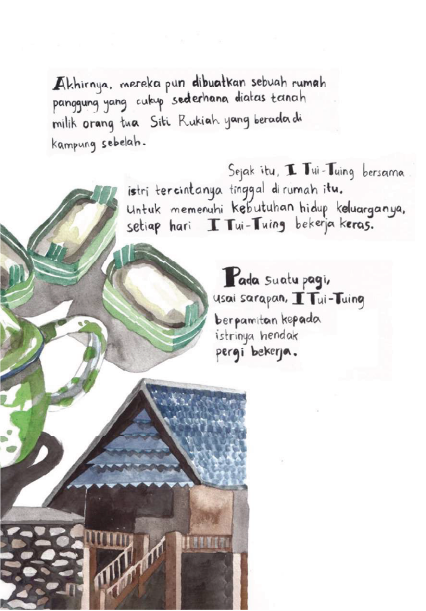 Akhirnya, mereka pun dibuatkan sebuah rumah
panggung yang cukup sederhana diatas tanah
milik orang tua Siti Rukiah yang berada di
kampung sebelah.
Sejak itu, I Tui-Tuing bersama
istri tercintanya tinggal di rumah itu.
Untuk memenuhi kebutuhan hidup keluarganya,
setiap hari I Tui-Tuing bekerja keras.
Pada suatu pagi,
usai sarapan, I Tui-Tuing
berpamitan kepada
istrinya hendak
pergi bekerja.